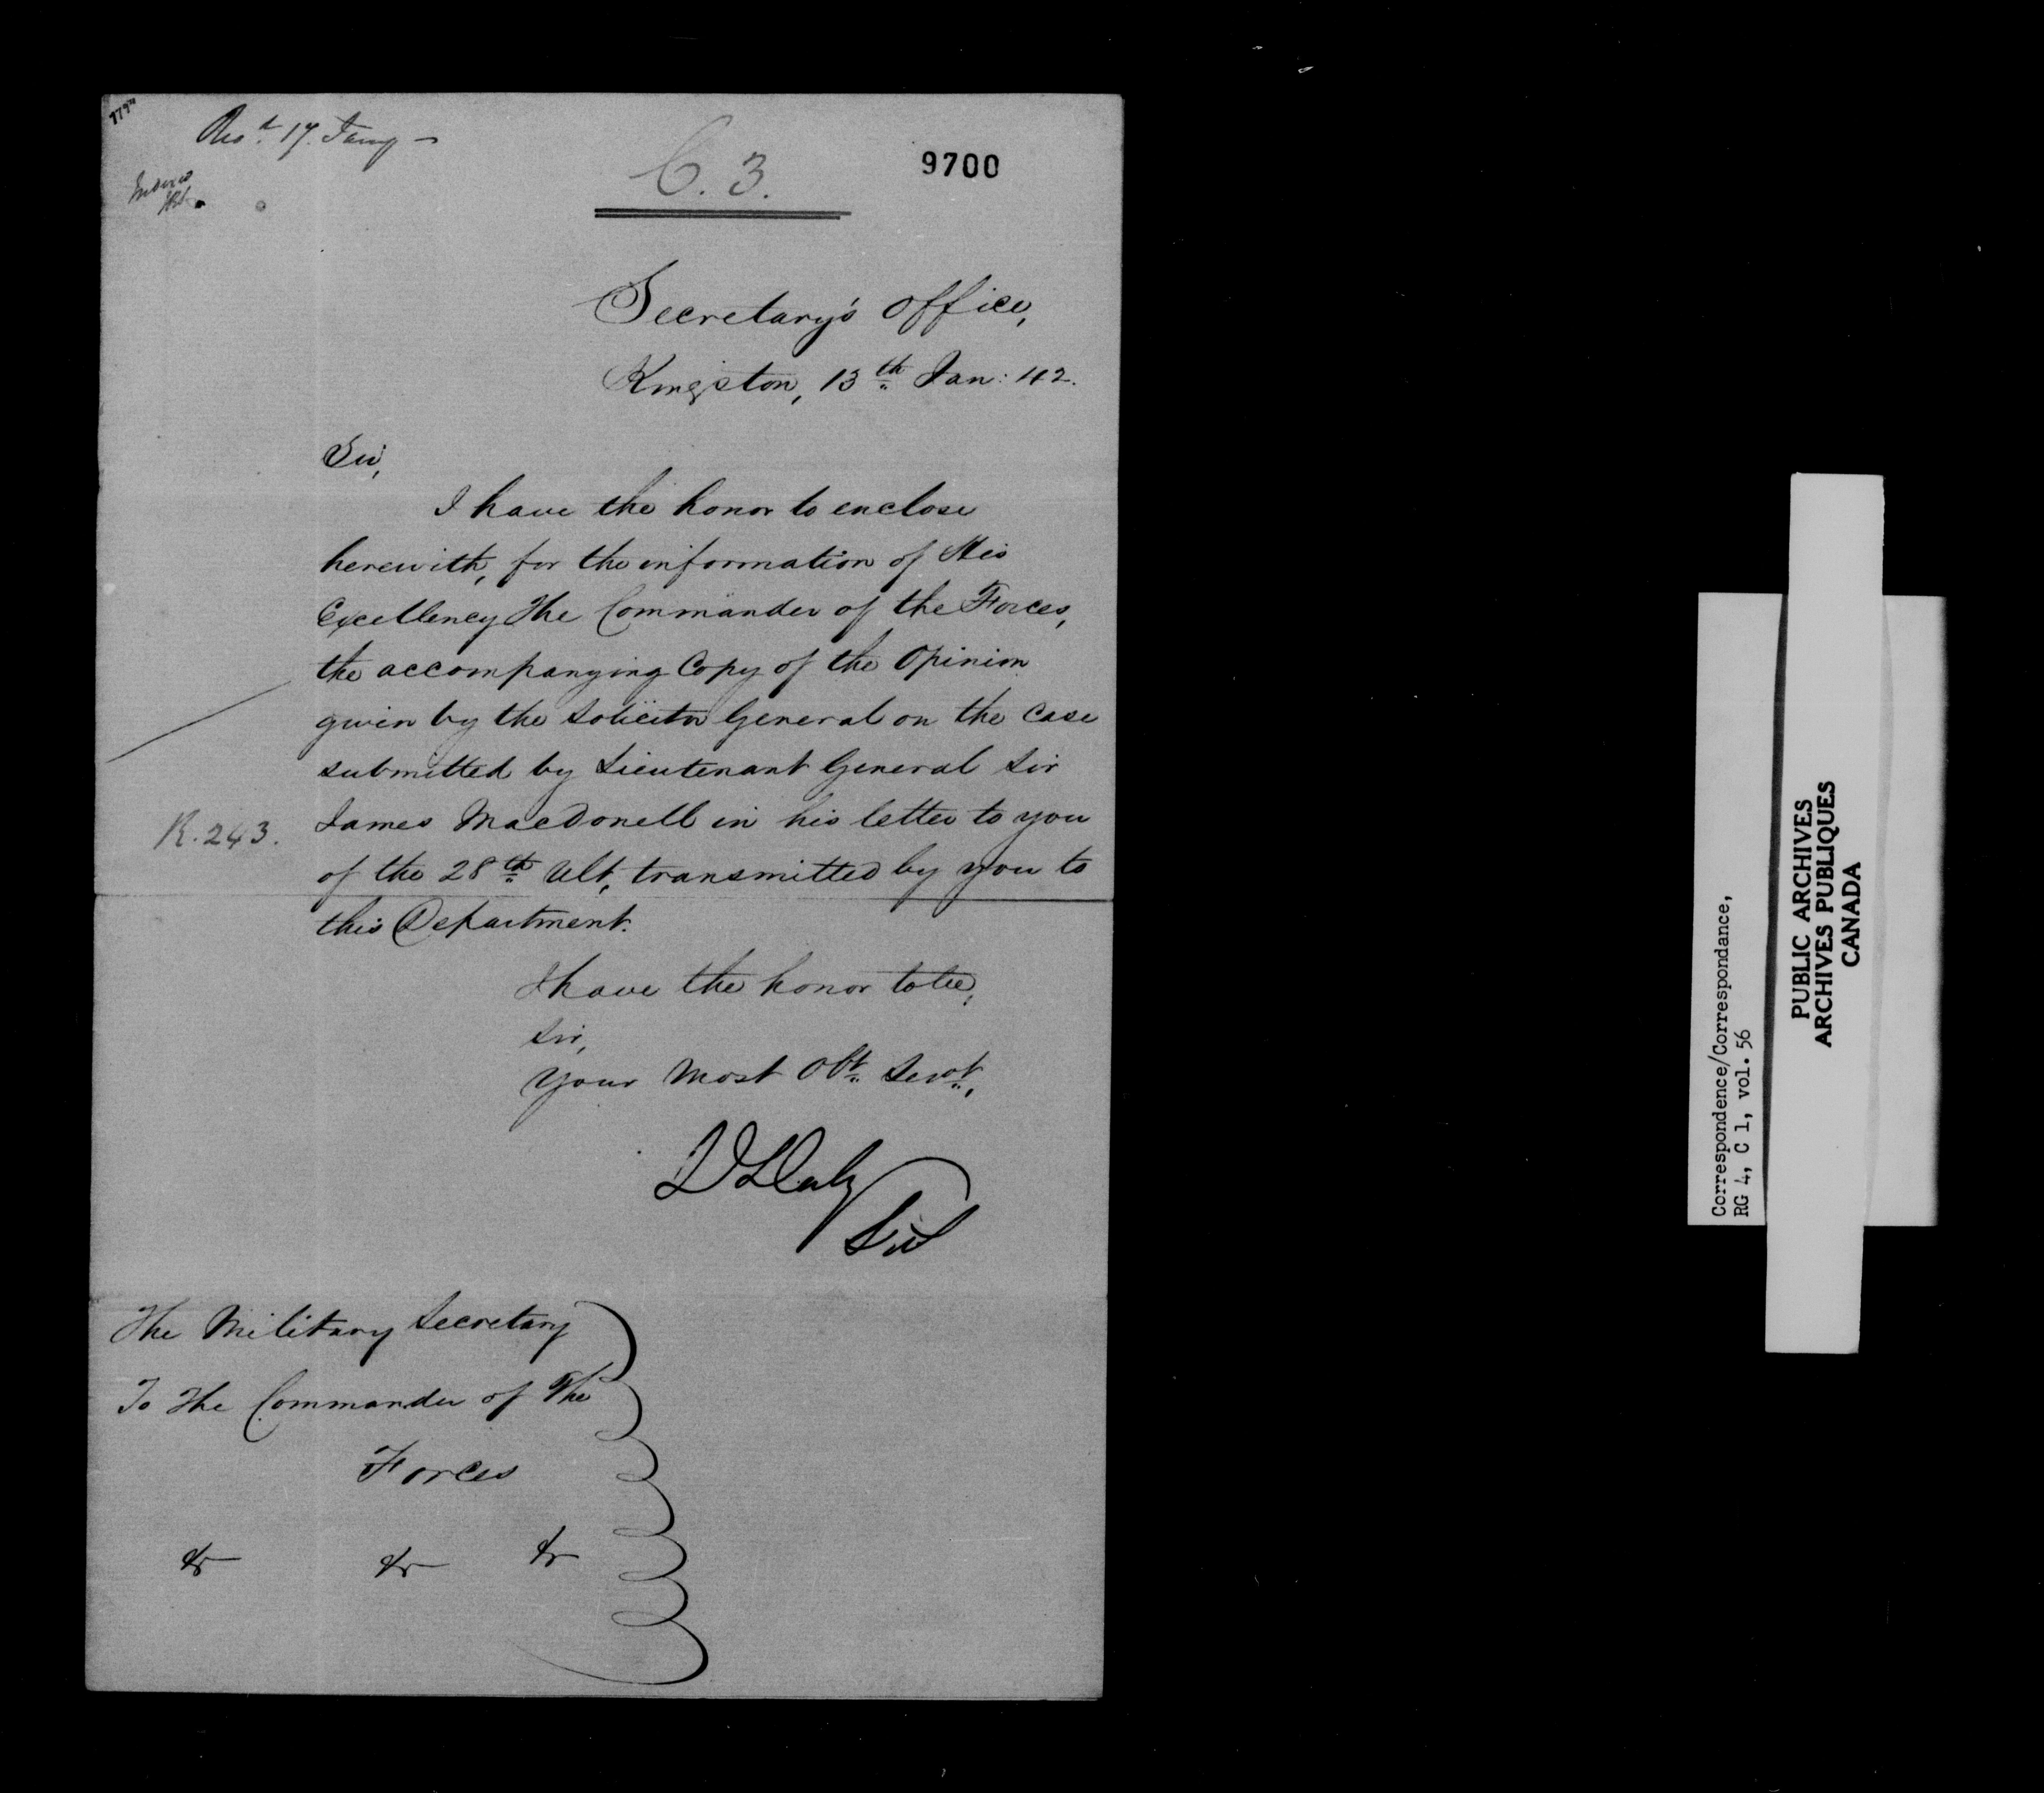 Recd. 17. Jany –
C. 3.
9700
Secretary's Office,
Kingston, 13th Jan: 42.
Sir,
I have the honor to enclose
herewith, for the information of His
Excellency The Commander of the Forces,
the accompanying Copy of the Opinion
given by the Solicitor General on the Case
submitted by Lieutenant General Sir
R. 243.
James MacDonell in his letter to you
of the 28th Ult, transmitted by you to
this Department.
I have the honor to be,
Sir,
Your Most Obt. Servt.,
D Daly
Sec
The Military Secretary
To The Commander of The
Forces
&c &c &c
Correspondence/Correspondance,
RG 4, C 1, vol. 56
PUBLIC ARCHIVES
ARCHIVES PUBLIQUES
CANADA